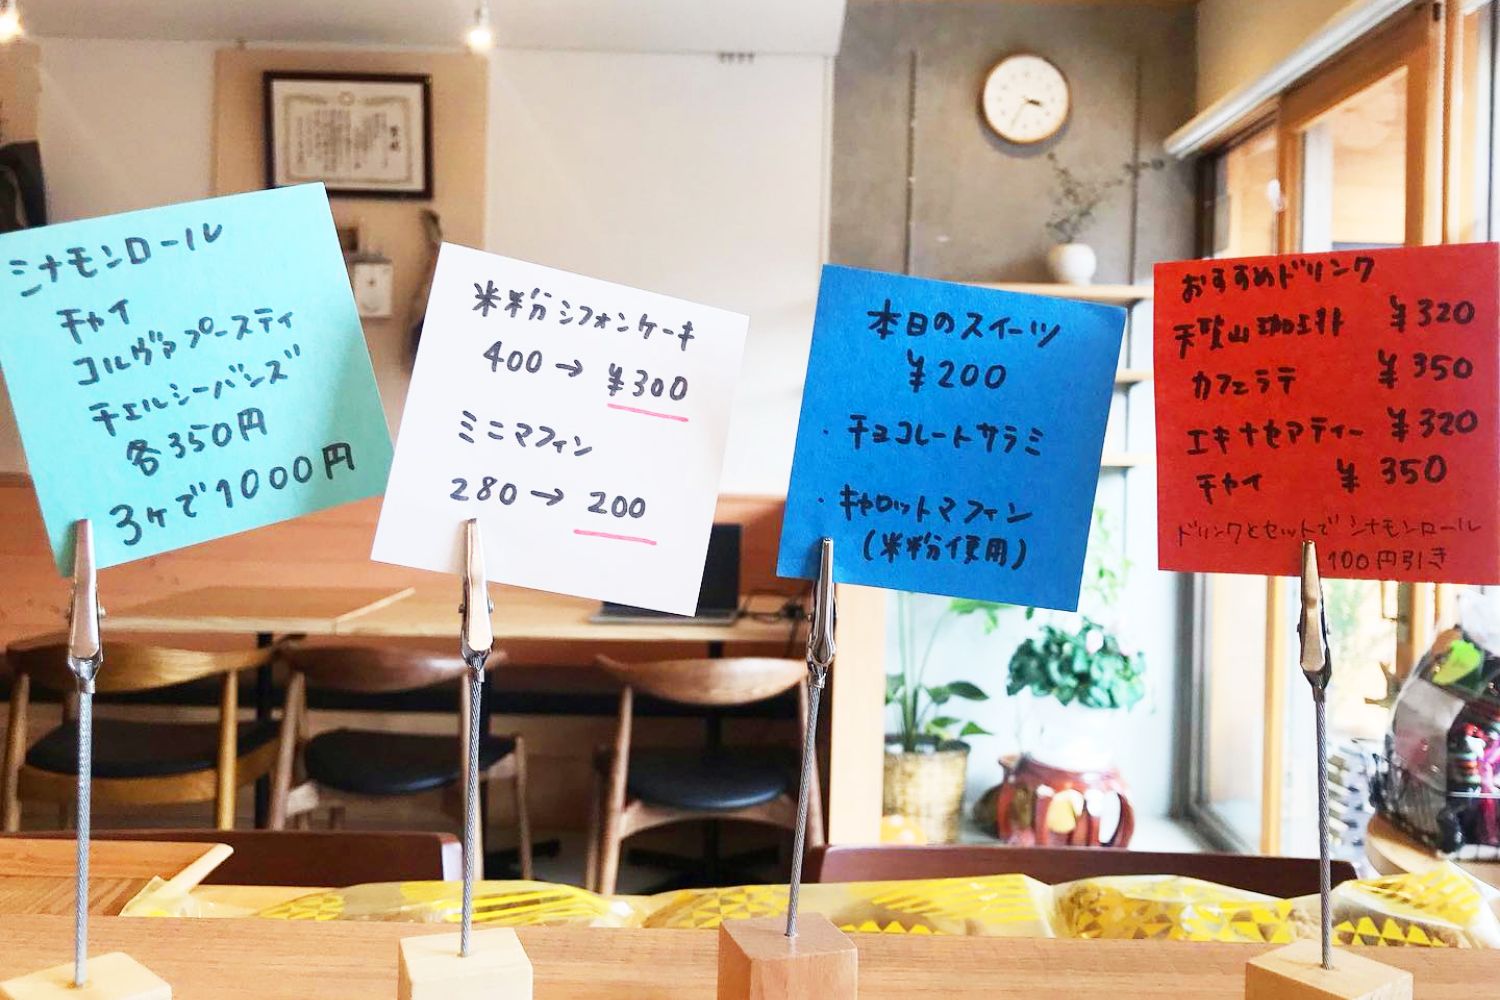 シナモンロール
チャイ
コルヴァプースティ
チェルシーバンズ
各350円
3ヶで1000円
米粉シフォンケーキ
400→¥300
ミニマフィン
280→200
本日のスイーツ
¥200
・チョコレートサラミ
・キャロットマフィン
(米粉使用)
おすすめドリンク
天聖山珈琲 ¥320
カフェラテ ¥350
エキナセアティー ¥320
チャイ ¥350
ドリンクとセットでシナモンロール
100円引き